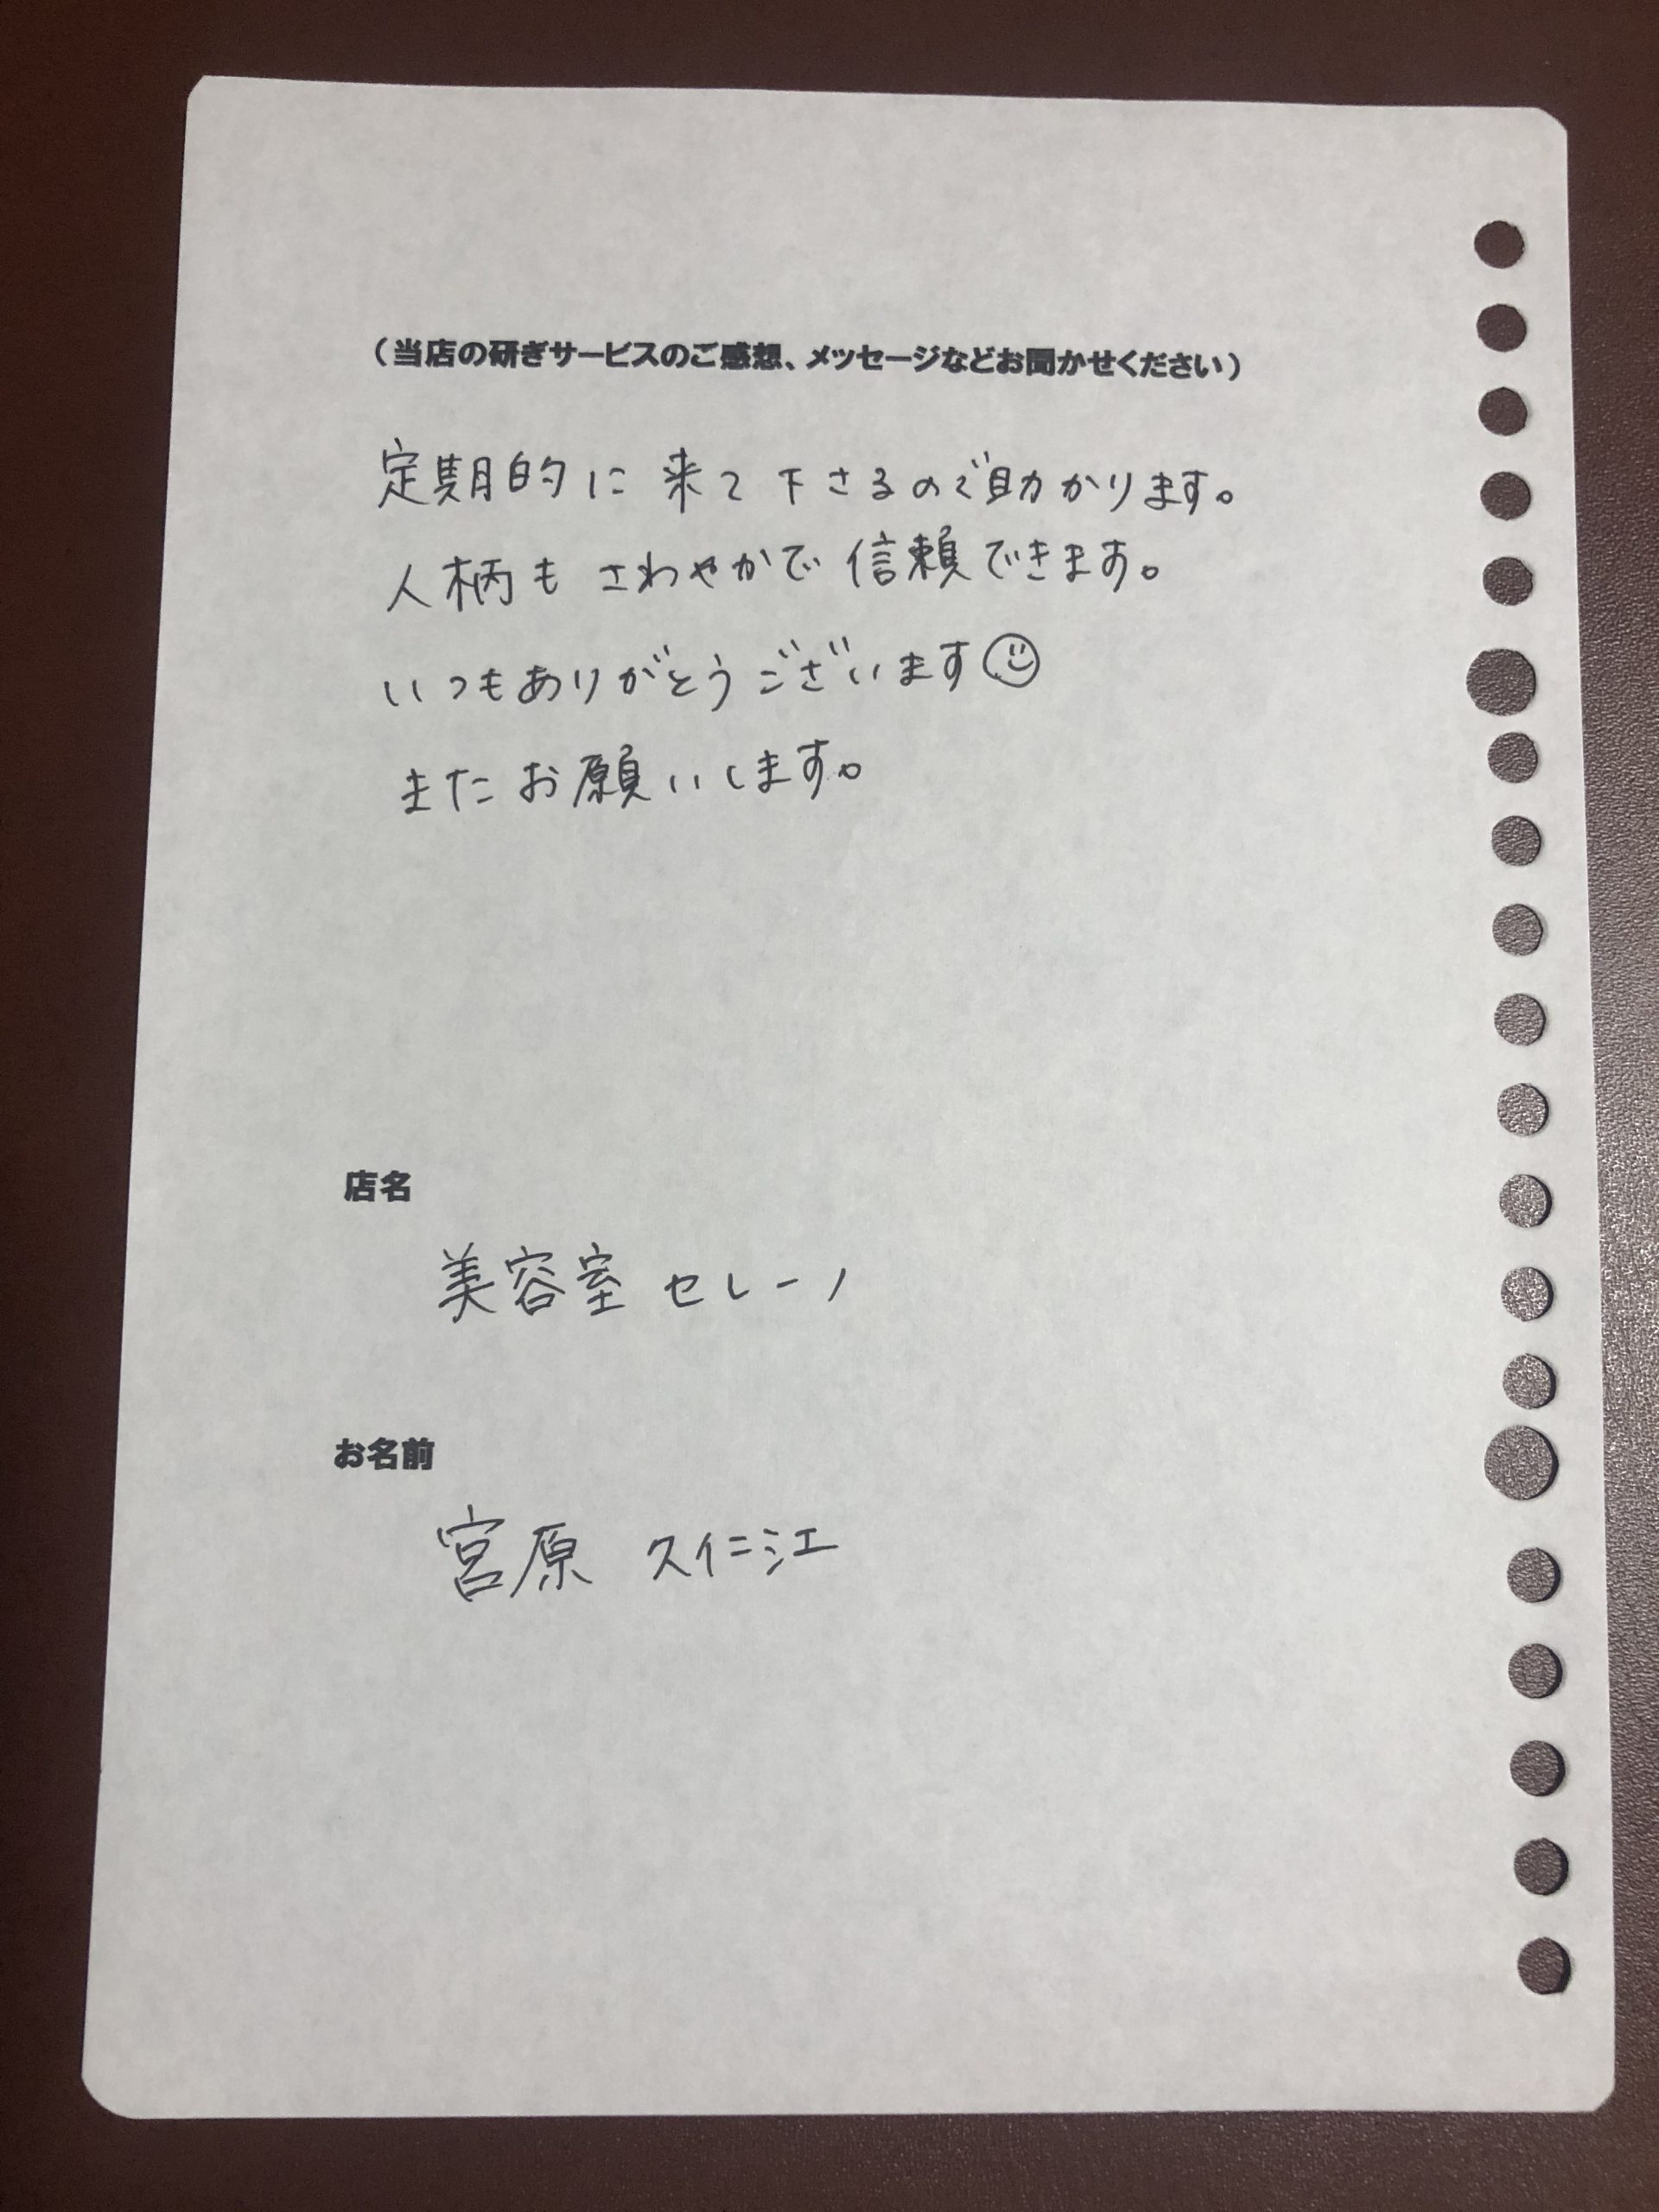 (当店の研ぎサービスのご感想、メッセージなどお聞かせください)
定期的に来て下さるので助かります。
人柄もさわやかで信頼できます。
いつもありがとうございます☺
またお願いします。
店名
美容室 セレーノ
お名前
宮原 久仁江